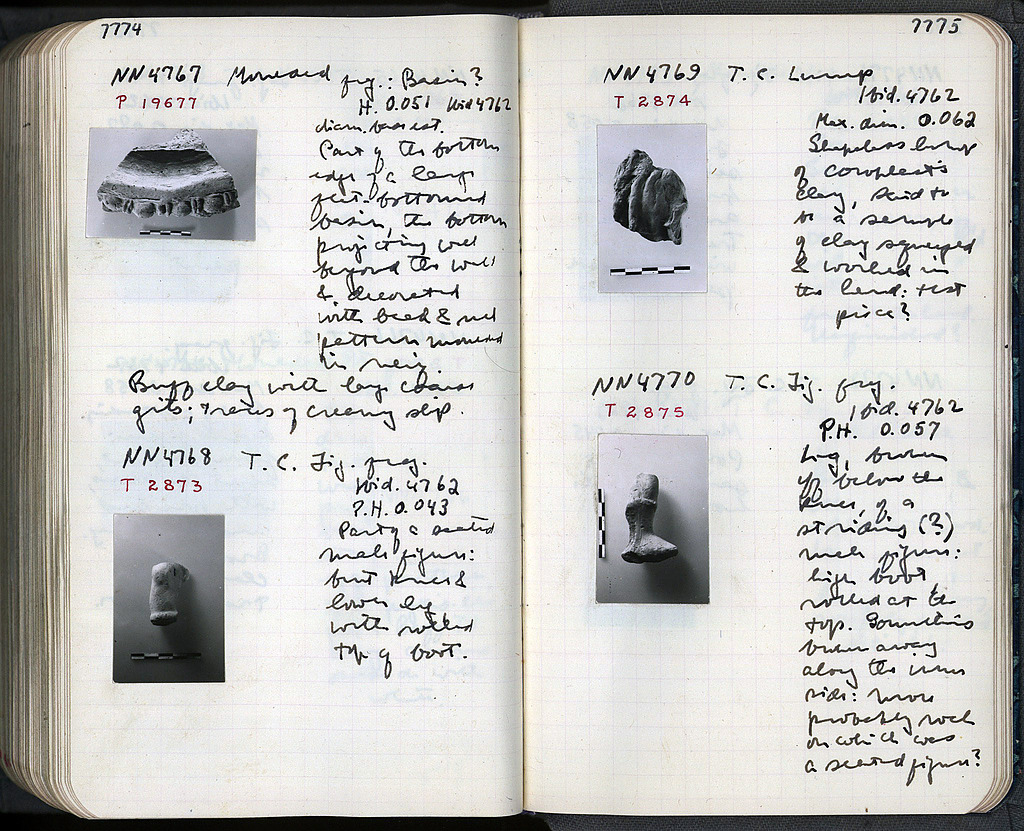 7774
NN4767 Moulded frg.: Basin?
P 19677
H. 0.051 Ibid 4762
diam. base est.
Part of the bottom
edge of a large
flat bottomed
basin, the bottom
projecting well
beyond the wall
& decorated
with bead & reel
pattern moulded
in
Buff clay with large coarse
grits; traces of creamy slip.
NN4768 T.C. Fig. frg.
T 2873
Ibid. 4762
P.H. 0.043
Part of a seated
male figure:
bent knee &
lower leg
with rolled
top of boot.
7775
NN4769 T.C. Lump
T 2874
Ibid. 4762
Max. dim. 0.062
Shapeless lump
of
clay, said to
be a sample
of clay squeezed
& worked in
the hand: test
piece?
NN4770 T.C. Fig. frg.
T 2875
Ibid. 4762
P.H. 0.057
Leg, broken
off below the
knee, of a
striding (?)
male figure:
high boot
rolled at the
top. Something
broken away
along the inner
side: more
probably rock
on which was
a seated figure?